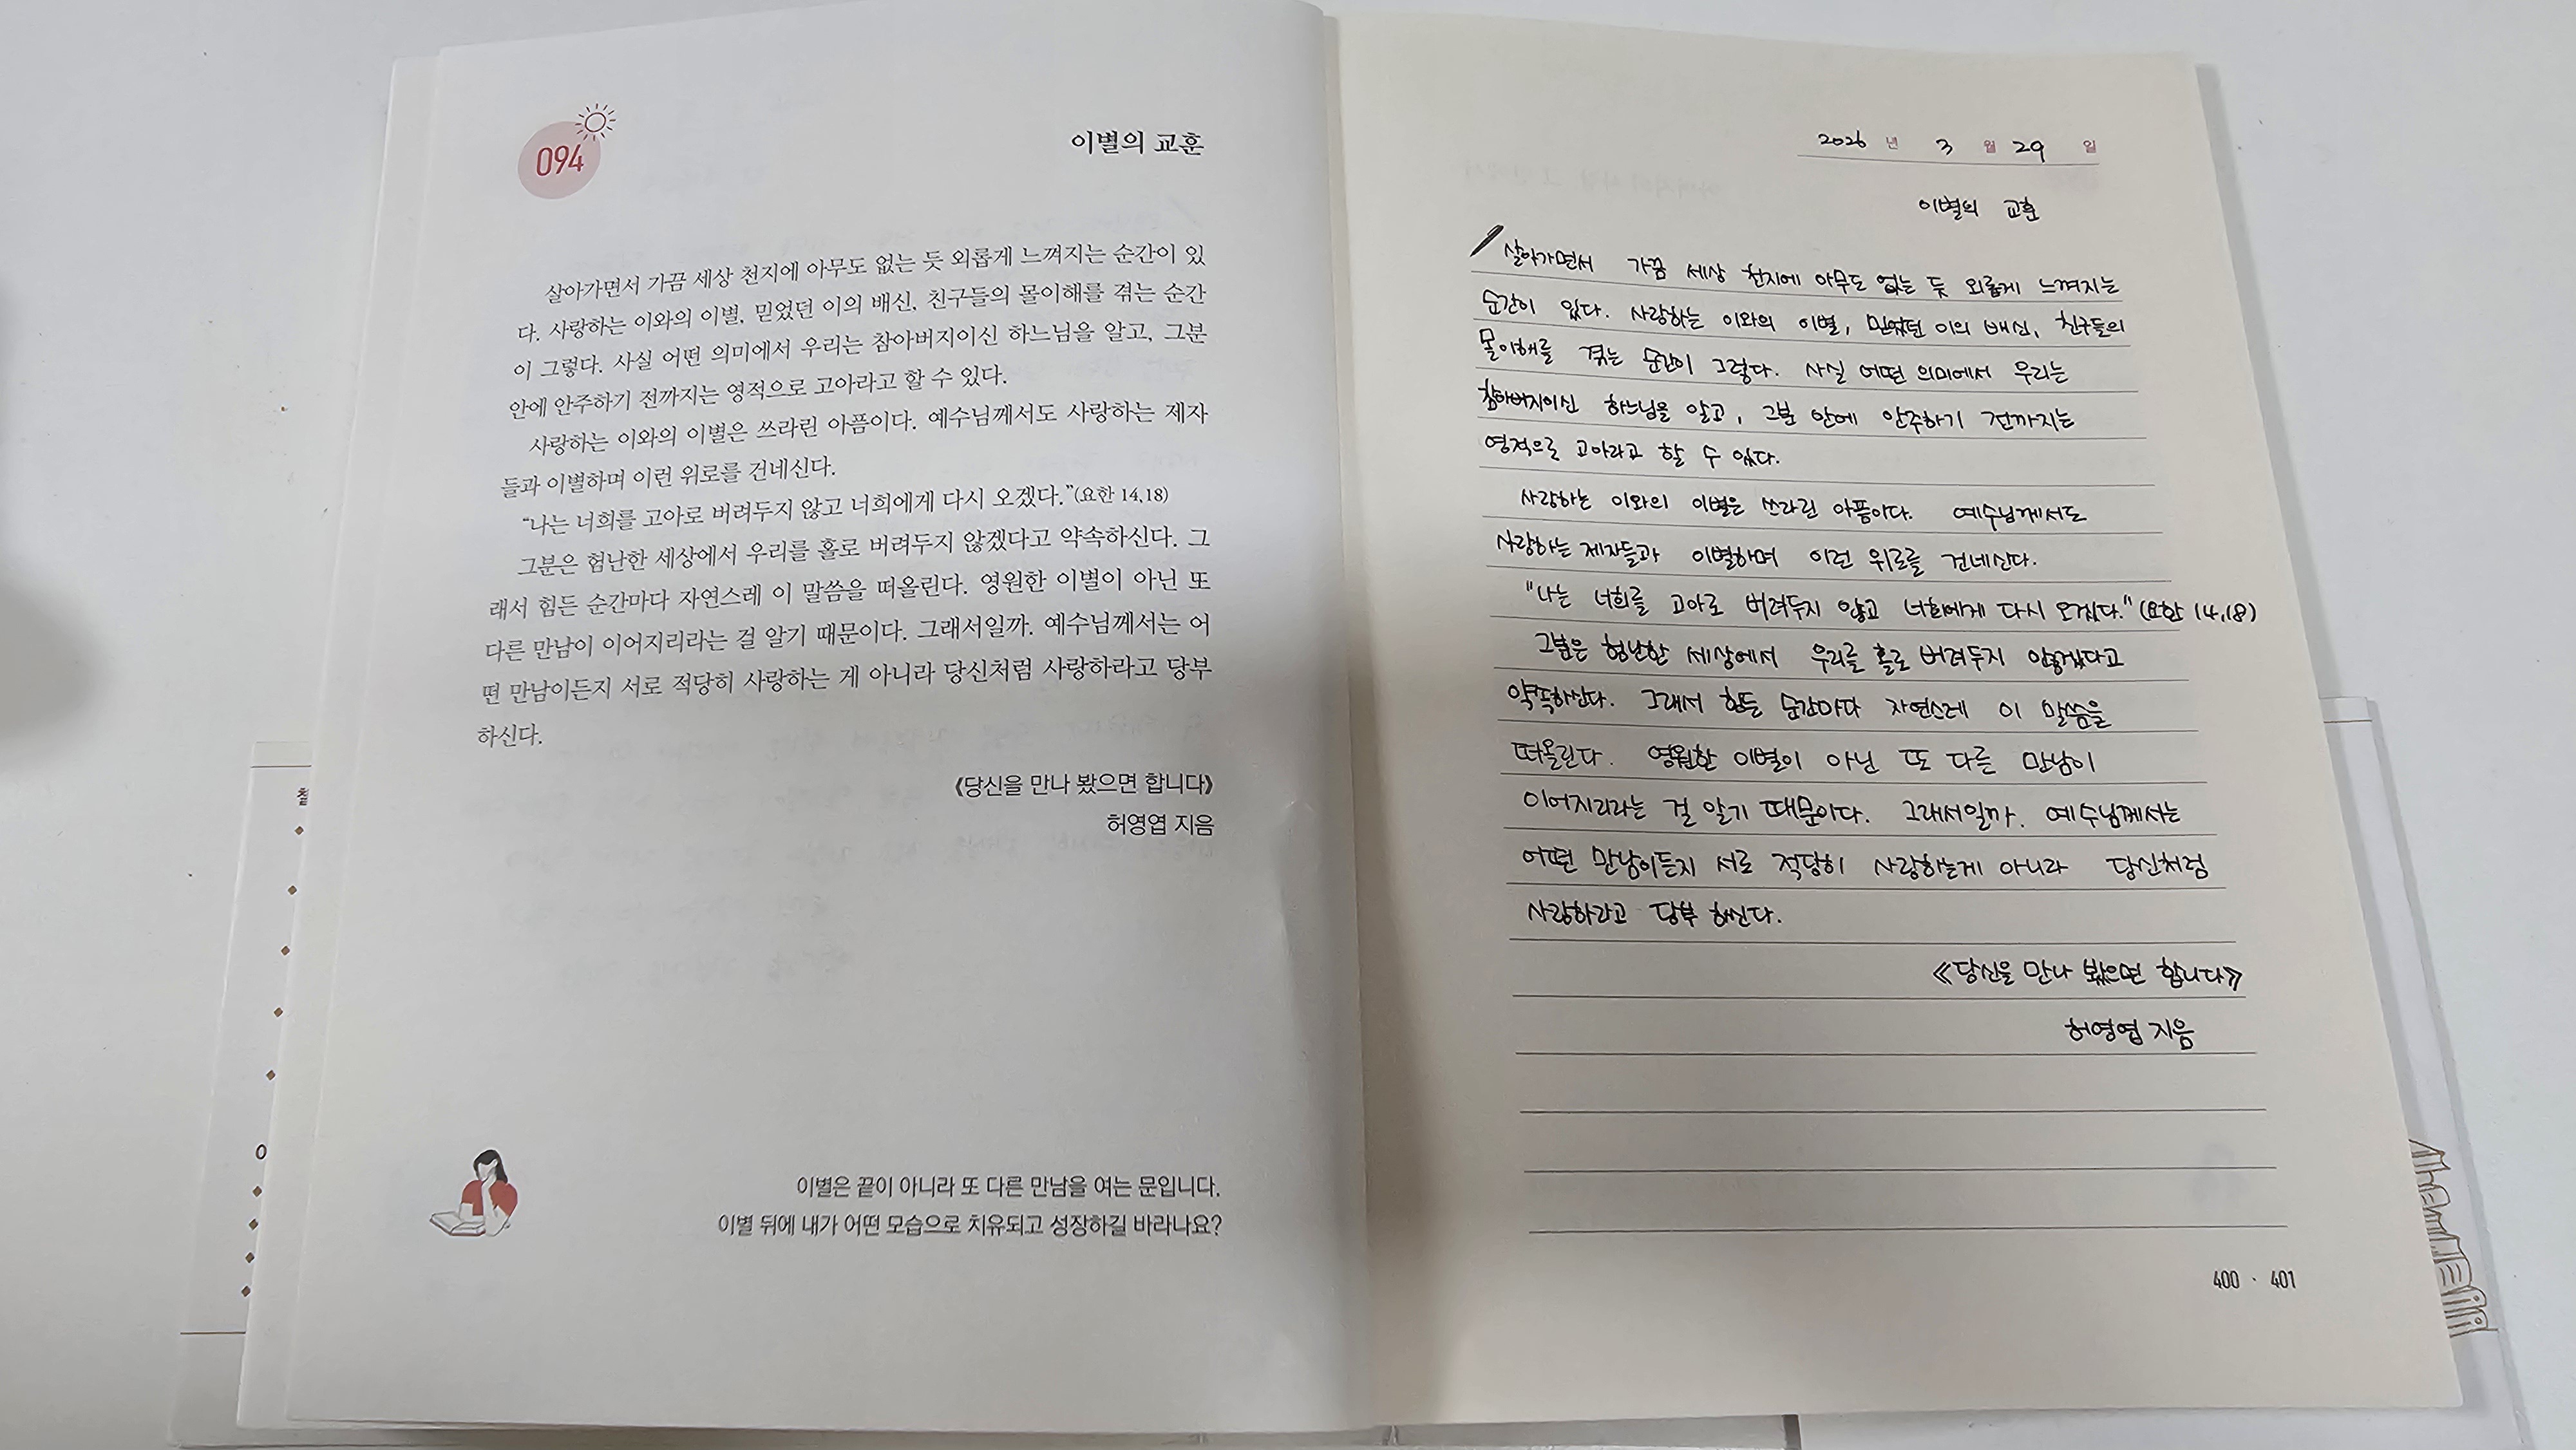 094
이별의 교훈
살아가면서 가끔 세상 천지에 아무도 없는 듯 외롭게 느껴지는 순간이 있
다. 사랑하는 이와의 이별, 믿었던 이의 배신, 친구들의 몰이해를 겪는 순간
이 그렇다. 사실 어떤 의미에서 우리는 참아버지이신 하느님을 알고, 그분
안에 안주하기 전까지는 영적으로 고아라고 할 수 있다.
사랑하는 이와의 이별은 쓰라린 아픔이다. 예수님께서도 사랑하는 제자
들과 이별하며 이런 위로를 건네신다.
“나는 너희를 고아로 버려두지 않고 너희에게 다시 오겠다.”(요한 14,18)
그분은 험난한 세상에서 우리를 홀로 버려두지 않겠다고 약속하신다. 그
래서 힘든 순간마다 자연스레 이 말씀을 떠올린다. 영원한 이별이 아닌 또
다른 만남이 이어지리라는 걸 알기 때문이다. 그래서일까. 예수님께서는 어
떤 만남이든지 서로 적당히 사랑하는 게 아니라 당신처럼 사랑하라고 당부
하신다.
《당신을 만나 봤으면 합니다》
허영엽 지음
이별은 끝이 아니라 또 다른 만남을 여는 문입니다.
이별 뒤에 내가 어떤 모습으로 치유되고 성장하길 바라나요?
2026 년 3 월 29 일
이별의 교훈
살아가면서 가끔 세상 천지에 아무도 없는 듯 외롭게 느껴지는
순간이 있다. 사랑하는 이와의 이별, 믿었던 이의 배신, 친구들의
몰이해를 겪는 순간이 그렇다. 사실 어떤 의미에서 우리는
참아버지이신 하느님을 알고, 그분 안에 안주하기 전까지는
영적으로 고아라고 할 수 있다.
사랑하는 이와의 이별은 쓰라린 아픔이다. 예수님께서도
사랑하는 제자들과 이별하며 이런 위로를 건네신다.
"나는 너희를 고아로 버려두지 않고 너희에게 다시 오겠다." (요한 14,18)
그분은 험난한 세상에서 우리를 홀로 버려두지 않겠다고
약속하신다. 그래서 힘든 순간마다 자연스레 이 말씀을
떠올린다. 영원한 이별이 아닌 또 다른 만남이
이어지리라는 걸 알기 때문이다. 그래서일까. 예수님께서는
어떤 만남이든지 서로 적당히 사랑하는게 아니라 당신처럼
사랑하라고 당부 하신다.
《당신을 만나 봤으면 합니다》
허영엽 지음
400 · 401